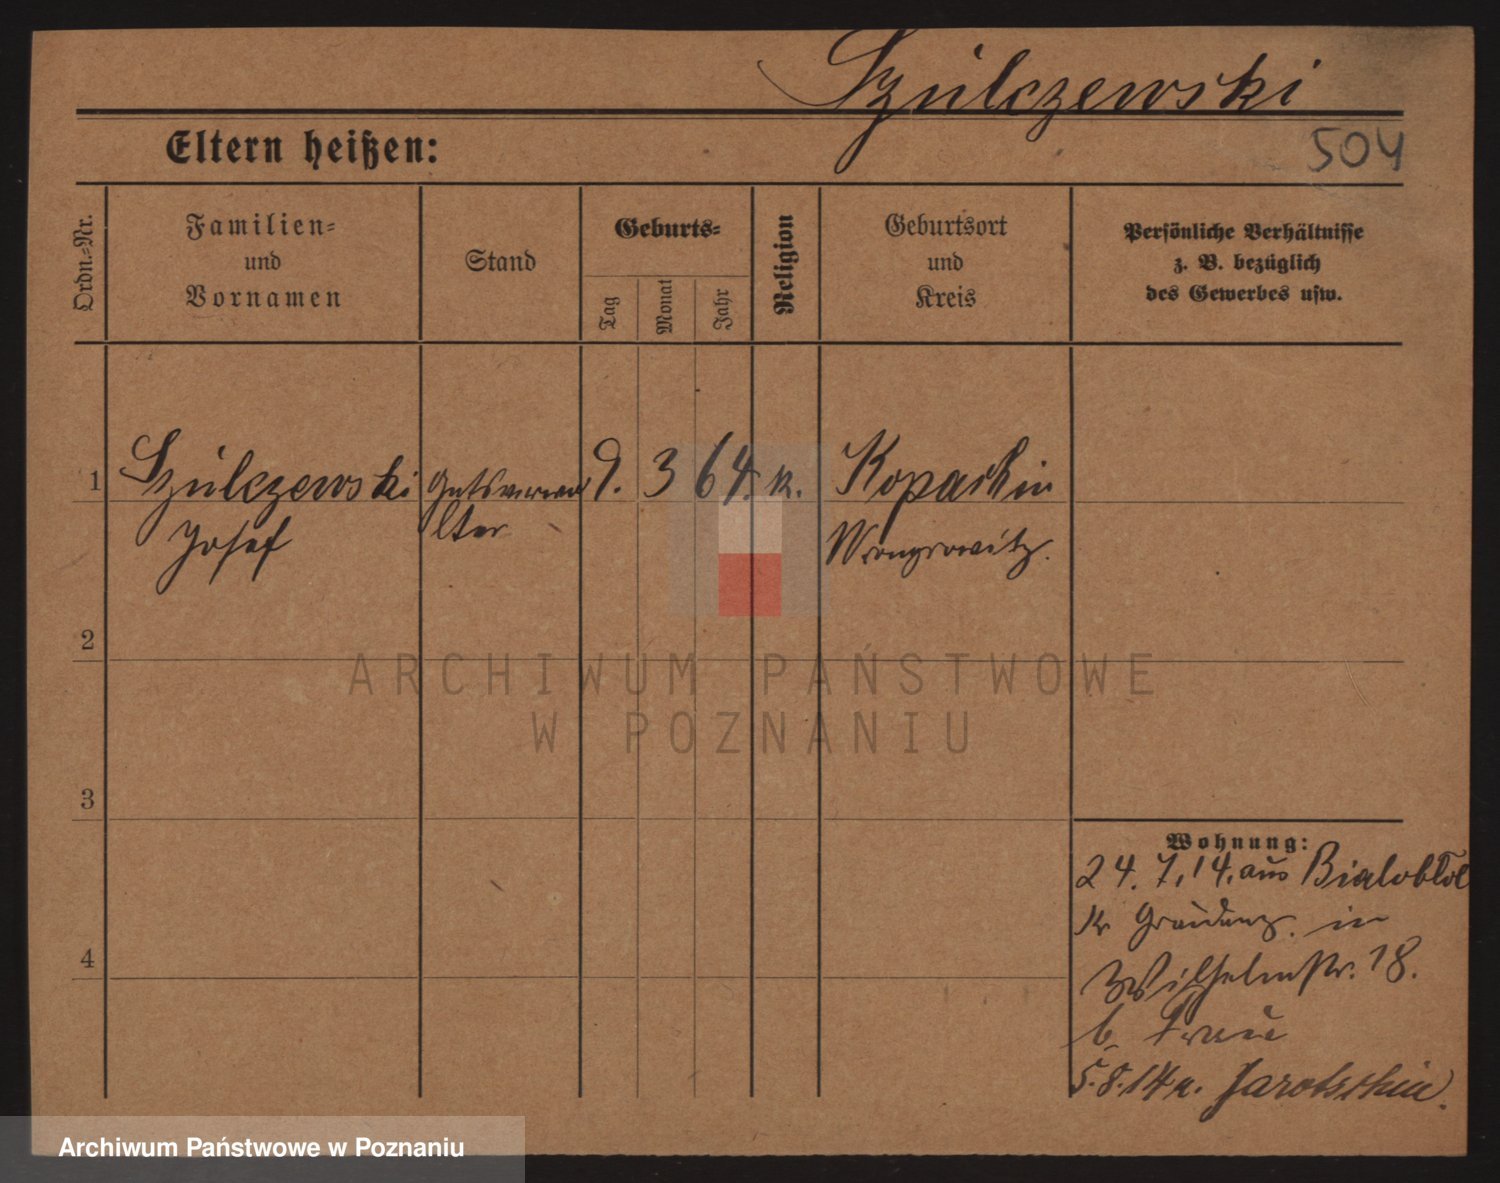 Szulczewski
504
Eltern heißen:
Ordn.-Nr.
Familien-
und
Vornamen
Stand
Geburts-
Tag
Monat
Jahr
Religion
Geburtsort
und
Kreis
Persönliche Verhältnisse
z. B. bezüglich
des Gewerbes usw.
1 Szulczewski Gutsverwal 9. 3 64. k. Kopaschin
Josef lter Wongrowitz.
2
ARCHIWUM PAŃSTWOWE
W POZNANIU
3
Wohnung:
24. 7. 14. aus
Kr Graudenz. in
Wilhelmstr. 18.
b. Frau
5. 8. 14 n. Jarotschin.
4
Archiwum Państwowe w Poznaniu